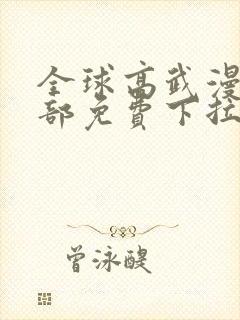 全球高武漫
部免费下拉
曾泳醍